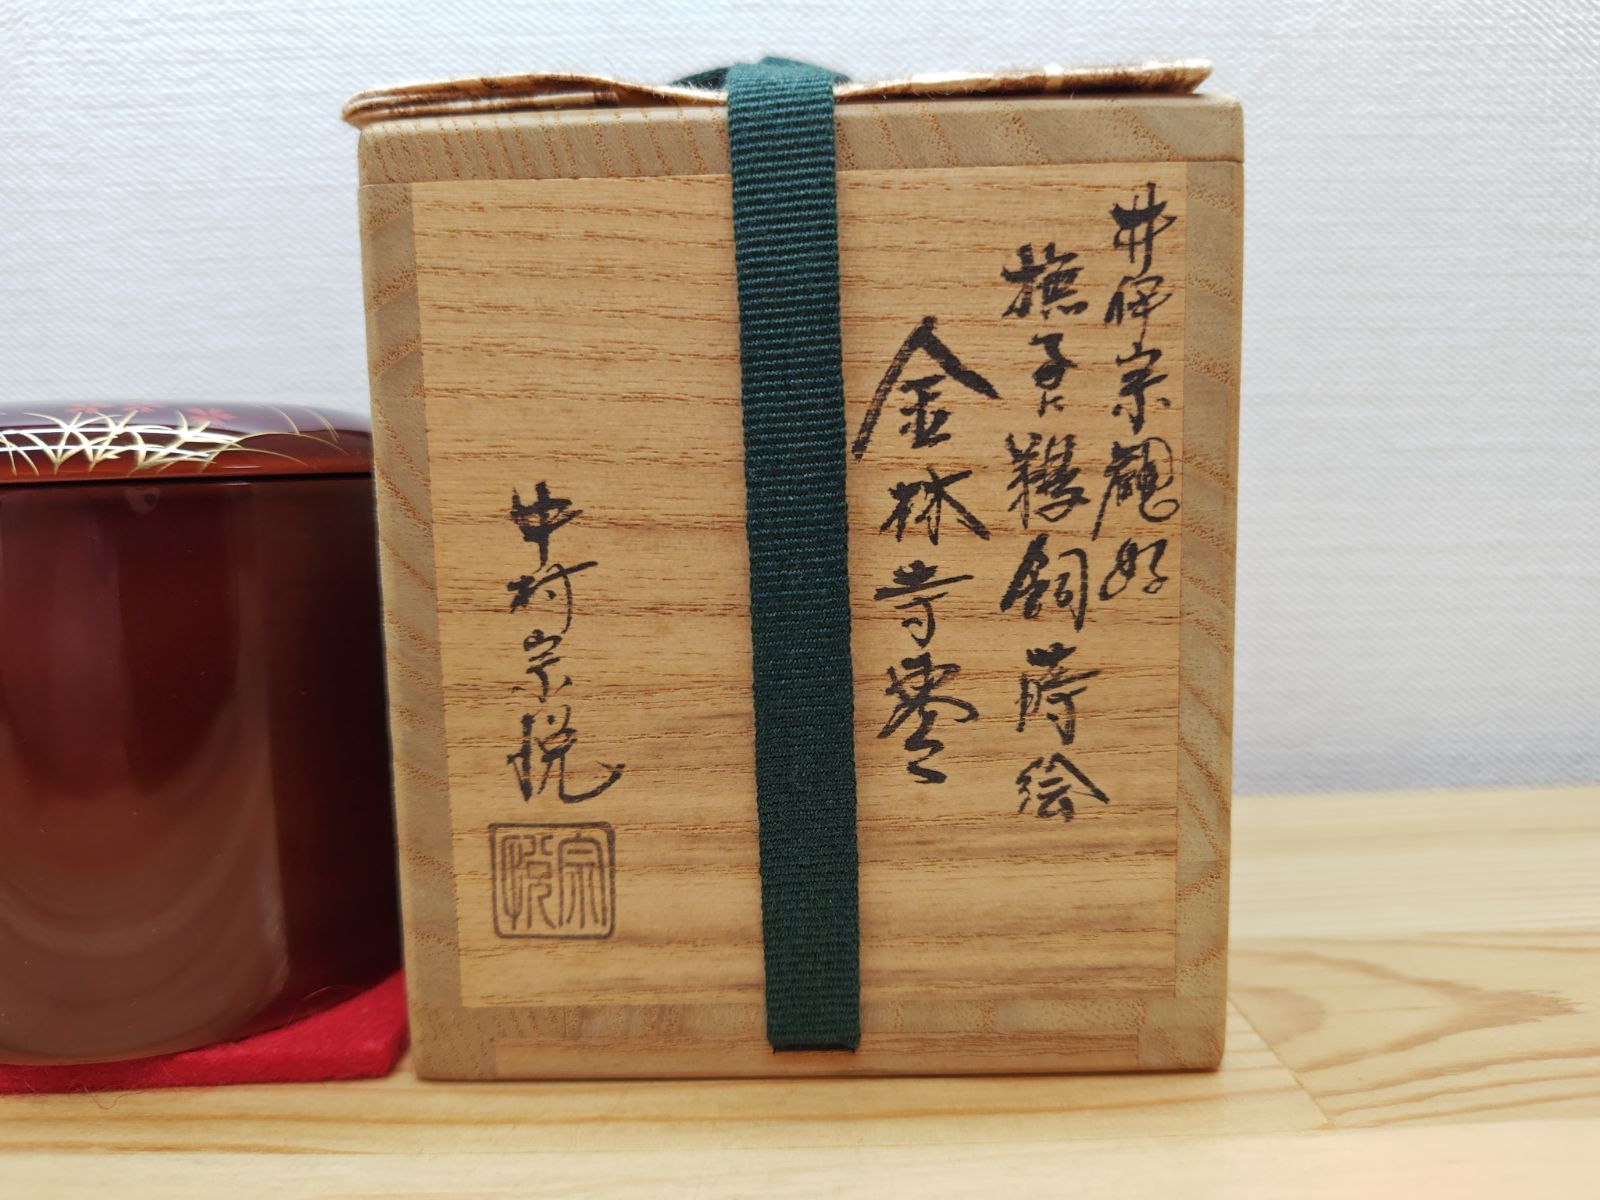 井伊宗観好
撫子に鞠飼蒔絵
金林寺棗
中村宗悦
宗悦